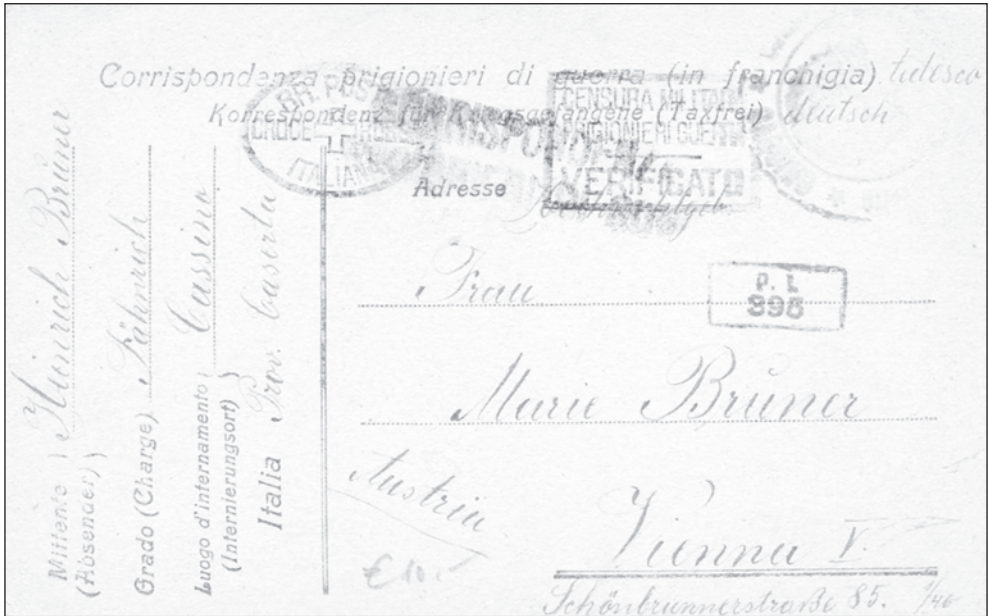 Corrispondenza prigionieri di guerra (in franchigia). tedesco
Korrespondenz für Kriegsgefangene (Taxfrei) deutsch
CROCE ROSSA
ITALIANA
CENSURA MILITARE
PRIGIONIERI GUERRA
VERIFICATO
Adresse
Frau
P. L
395
Marie Bruner
Austria
Vienna V.
Schönbrunnerstraße 85.
€ 10.-
Mittente (Absender) Heinrich Bruner
Grado (Charge) Fähnrich
Luogo d'internamento (Internierungsort) Cassino
Italia Prov. Caserta